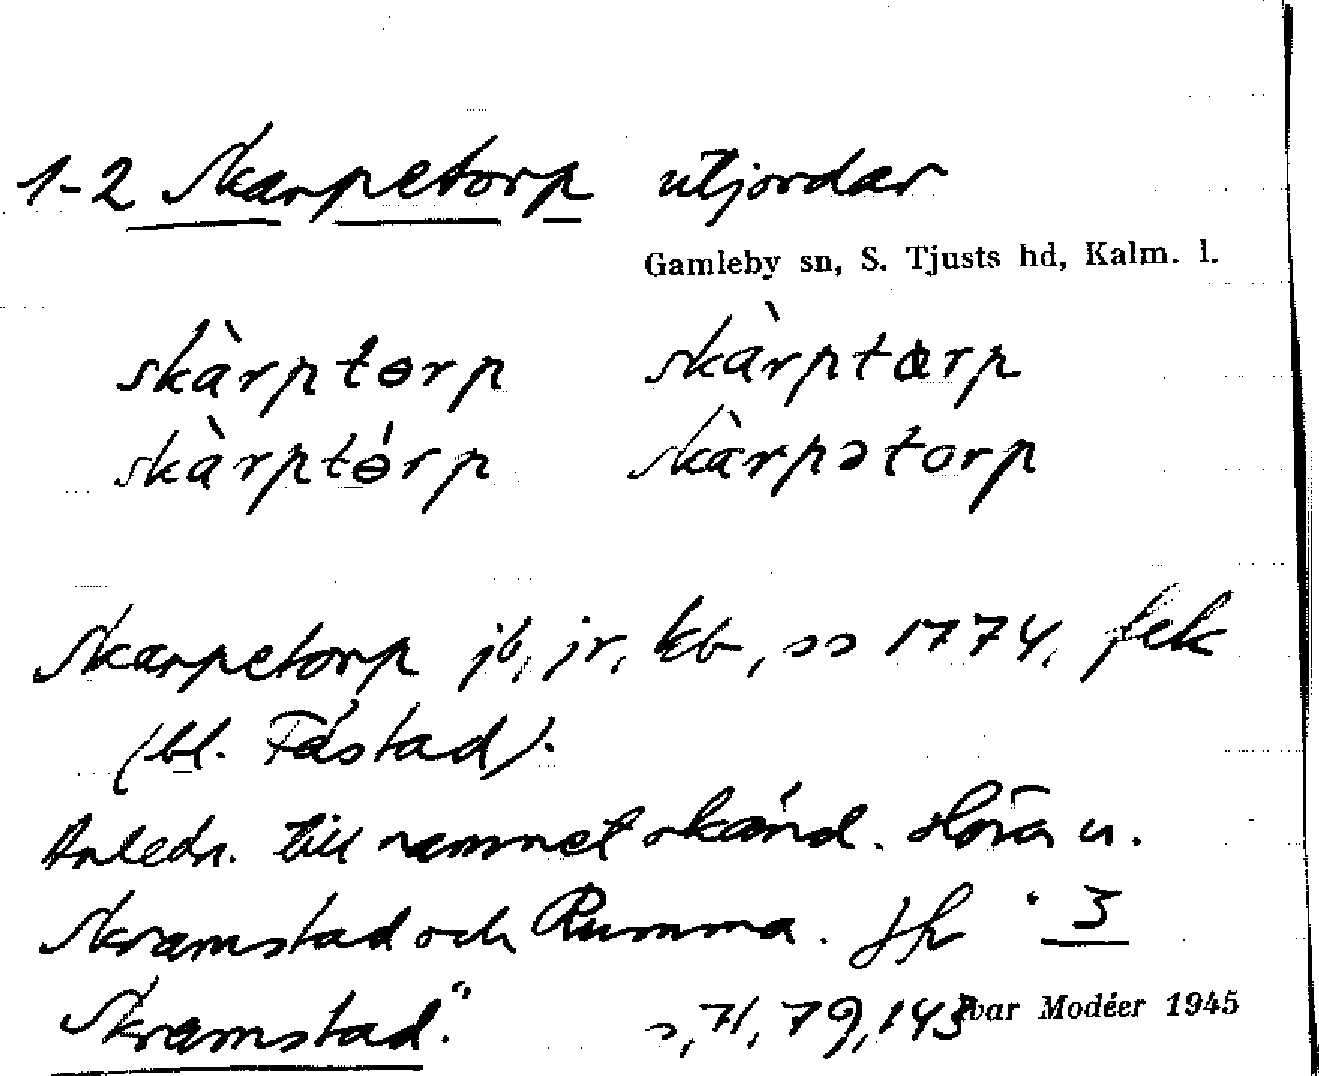 1-2 Skarpetorp utjordar
Gamleby sn, S. Tjusts hd, Kalm. l.
skàrptorp skàrptarp
skàrptórp skàrpətorp
Skarpetorp jb, jr, kb, ss 1774, fek
(bl. Fåstad).
Anledn. till namnet okänd. Höra u.
Skramstad och Rumma. Jfr "3
Skramstad."
s, 71, 79, 143 Ivar Modéer 1945